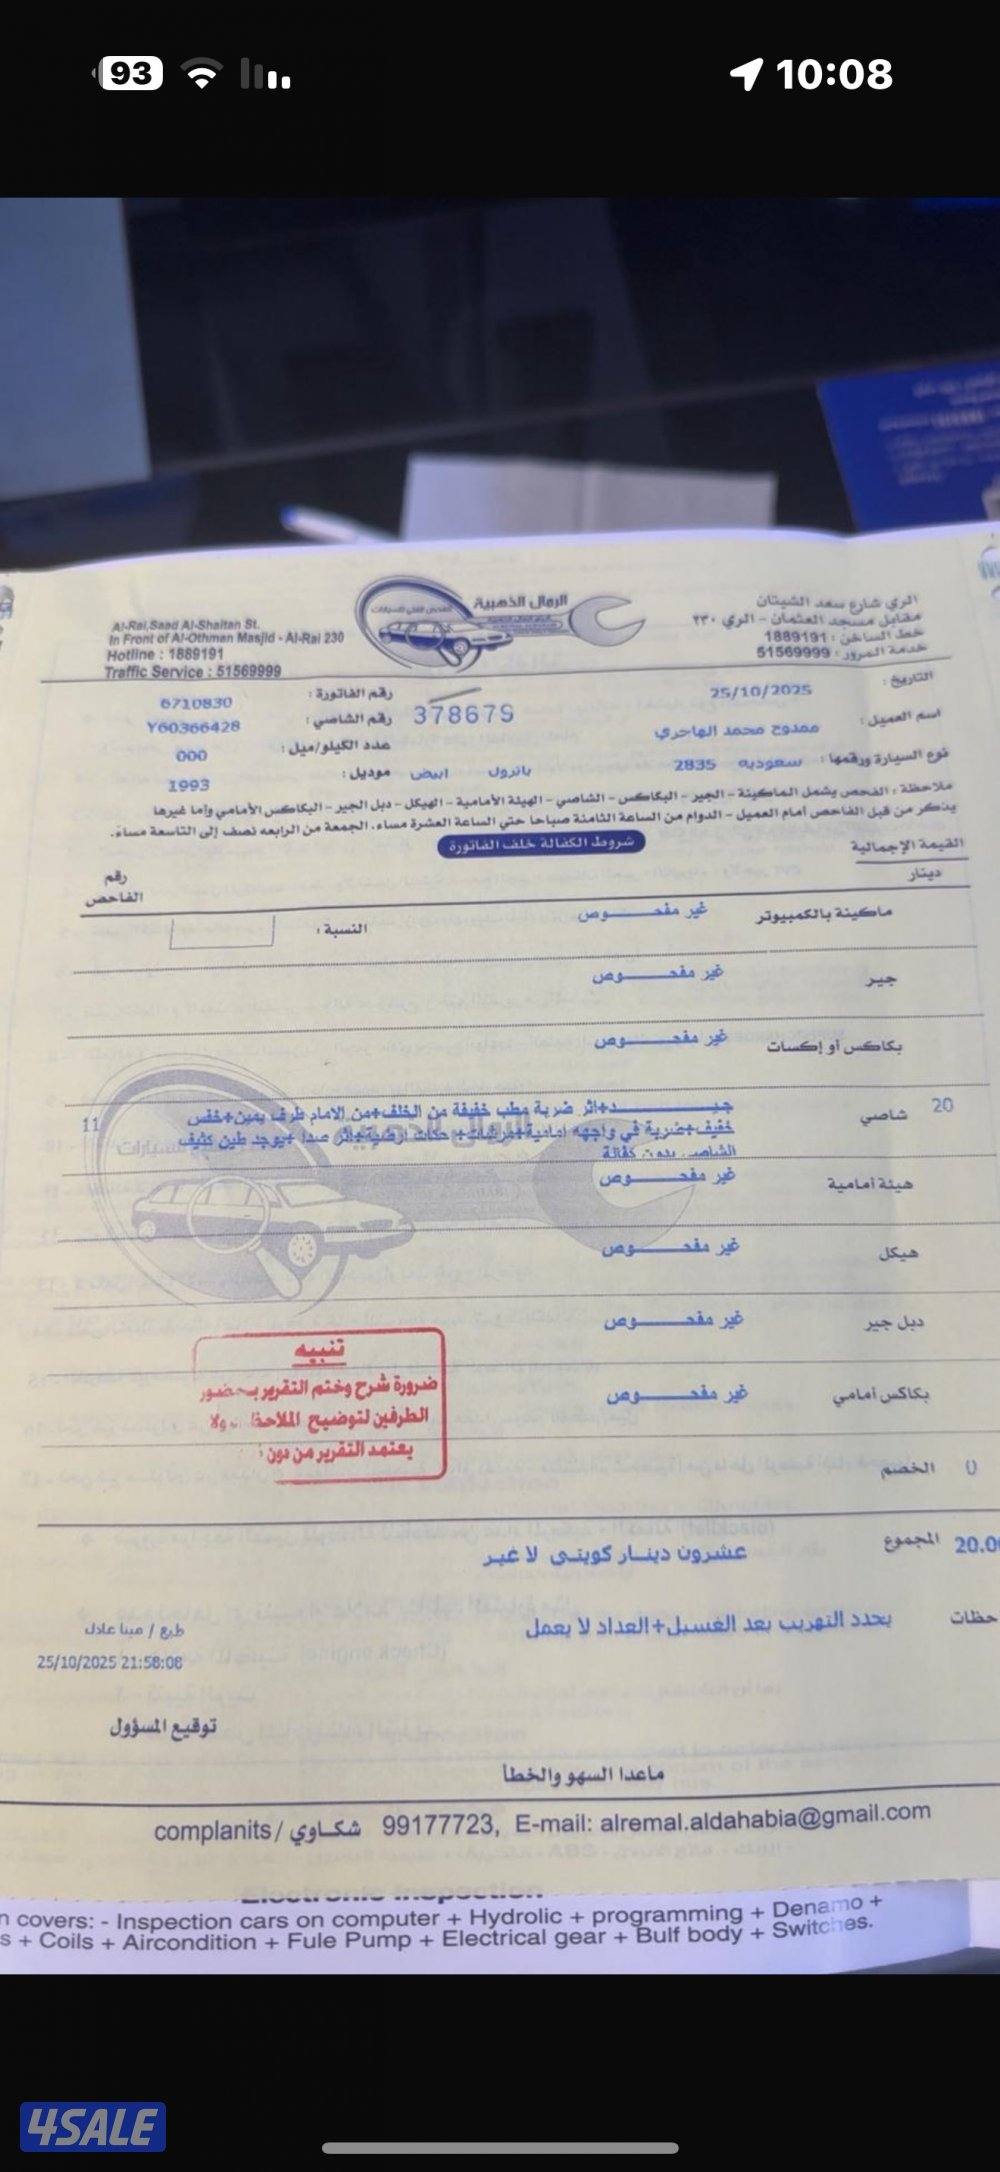 93
10:08
الري شارع سعد الشيتان
مقابل مسجد العثمان - الري ٢٣٠
خط الساخن : 1889191
خدمة المرور : 51569999
الرمال الذهبية
Al-Rai,Saad Al-Shaitan St.
In Front of Al-Othman Masjid - Al-Rai 230
Hotline : 1889191
Traffic Service : 51569999
التاريخ : 25/10/2025
رقم الفاتورة : 6710830
اسم العميل : ممدوح محمد الهاجري
378679
رقم الشاصي : Y60366428
نوع السيارة ورقمها : سعوديه 2835 باترول ابيض
عدد الكيلو/ميل : 000
موديل : 1993
ملاحظة : الفحص يشمل الماكينة - الجير - البكاكس - الشاصي - الهيئة الأمامية - الهيكل - دبل الجير - البكاكس الأمامي وإما غيرها
يذكر من قبل الفاحص أمام العميل - الدوام من الساعة الثامنة صباحا حتى الساعة العشرة مساء، الجمعة من الرابعه نصف إلى التاسعة مساءً.
شروط الكفالة خلف الفاتورة
القيمة الإجمالية
دينار
رقم
الفاحص
ماكينة بالكمبيوتر غير مفحـــــــوص النسبة :
جير غير مفحـــــــوص
بكاكس أو إكسات غير مفحـــــــوص
20 شاصي جيـــــــد+اثر ضربة مطب خفيفة من الخلف+من الامام طرف يمين+خفس 11
خفيف+ضربة في واجهه امامية+مرشات+ حكات ارضية+اثر صدا +يوجد طين كثيف
الشاصي بدون كفالة
هيئة أمامية غير مفحـــــــوص
هيكل غير مفحـــــــوص
دبل جير غير مفحـــــــوص
بكاكس أمامي غير مفحـــــــوص
تنبيه
ضرورة شرح وختم التقرير بحضور
الطرفين لتوضيح الملاحظات ولا
يعتمد التقرير من دون
0 الخصم
20.00 المجموع عشرون دينار كويتي لا غير
حظات يحدد التهريب بعد الغسيل+العداد لا يعمل
طبع / مينا عادل
25/10/2025 21:58:08
توقيع المسؤول
ماعدا السهو والخطأ
complanits / شكاوي 99177723, E-mail: alremal.aldahabia@gmail.com
Electronic Inspection
n covers: - Inspection cars on computer + Hydrolic + programming + Denamo +
s + Coils + Aircondition + Fule Pump + Electrical gear + Bulf body + Switches.
4SALE